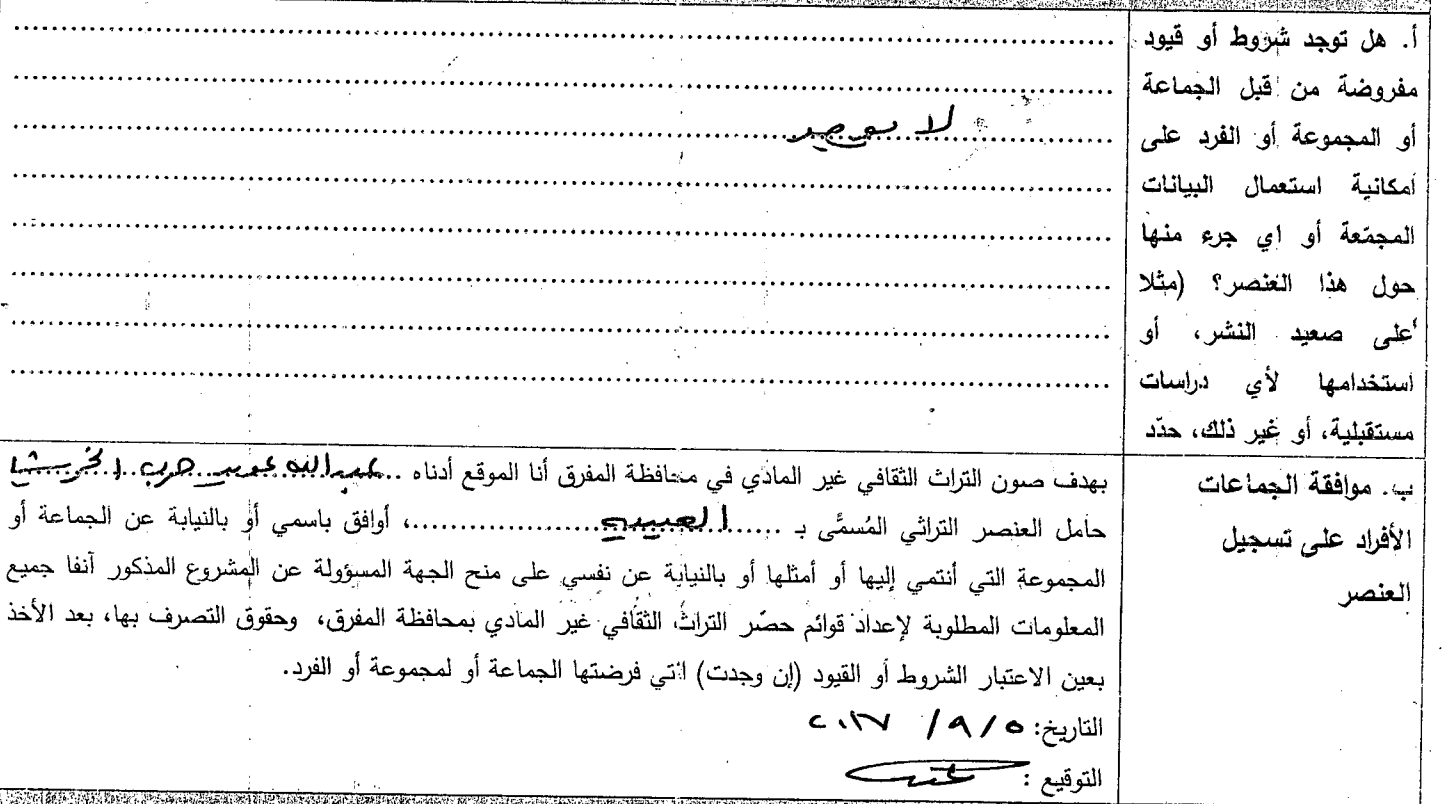 أ. هل توجد شروط أو قيود
مفروضة من قبل الجماعة
أو المجموعة أو الفرد على
امكانية استعمال البيانات
المجمّعة أو اي جرء منها
حول هذا العنصر؟ (مثلا
على صعيد النشر، أو
استخدامها لأي دراسات
مستقبلية، أو غير ذلك، حدّد
لا يوجد
ب. موافقة الجماعات
الأفراد على تسجيل
العنصر
بهدف صون التراث الثقافي غير المادي في محافظة المفرق أنا الموقع أدناه ..عبدالله عويد حرب الخريشا
حامل العنصر التراثي المُسمَّى بـ .........................، أوافق باسمي أو بالنيابة عن الجماعة أو
المجموعة التي أنتمي إليها أو أمثلها أو بالنيابة عن نفسي على منح الجهة المسؤولة عن المشروع المذكور آنفا جميع
المعلومات المطلوبة لإعداد قوائم حصّر التراث الثقافي غير المادي بمحافظة المفرق، وحقوق التصرف بها، بعد الأخذ
بعين الاعتبار الشروط أو القيود (إن وجدت) اتي فرضتها الجماعة أو لمجموعة أو الفرد.
التاريخ: ٥ / ٩ / ٢٠١٧
التوقيع :